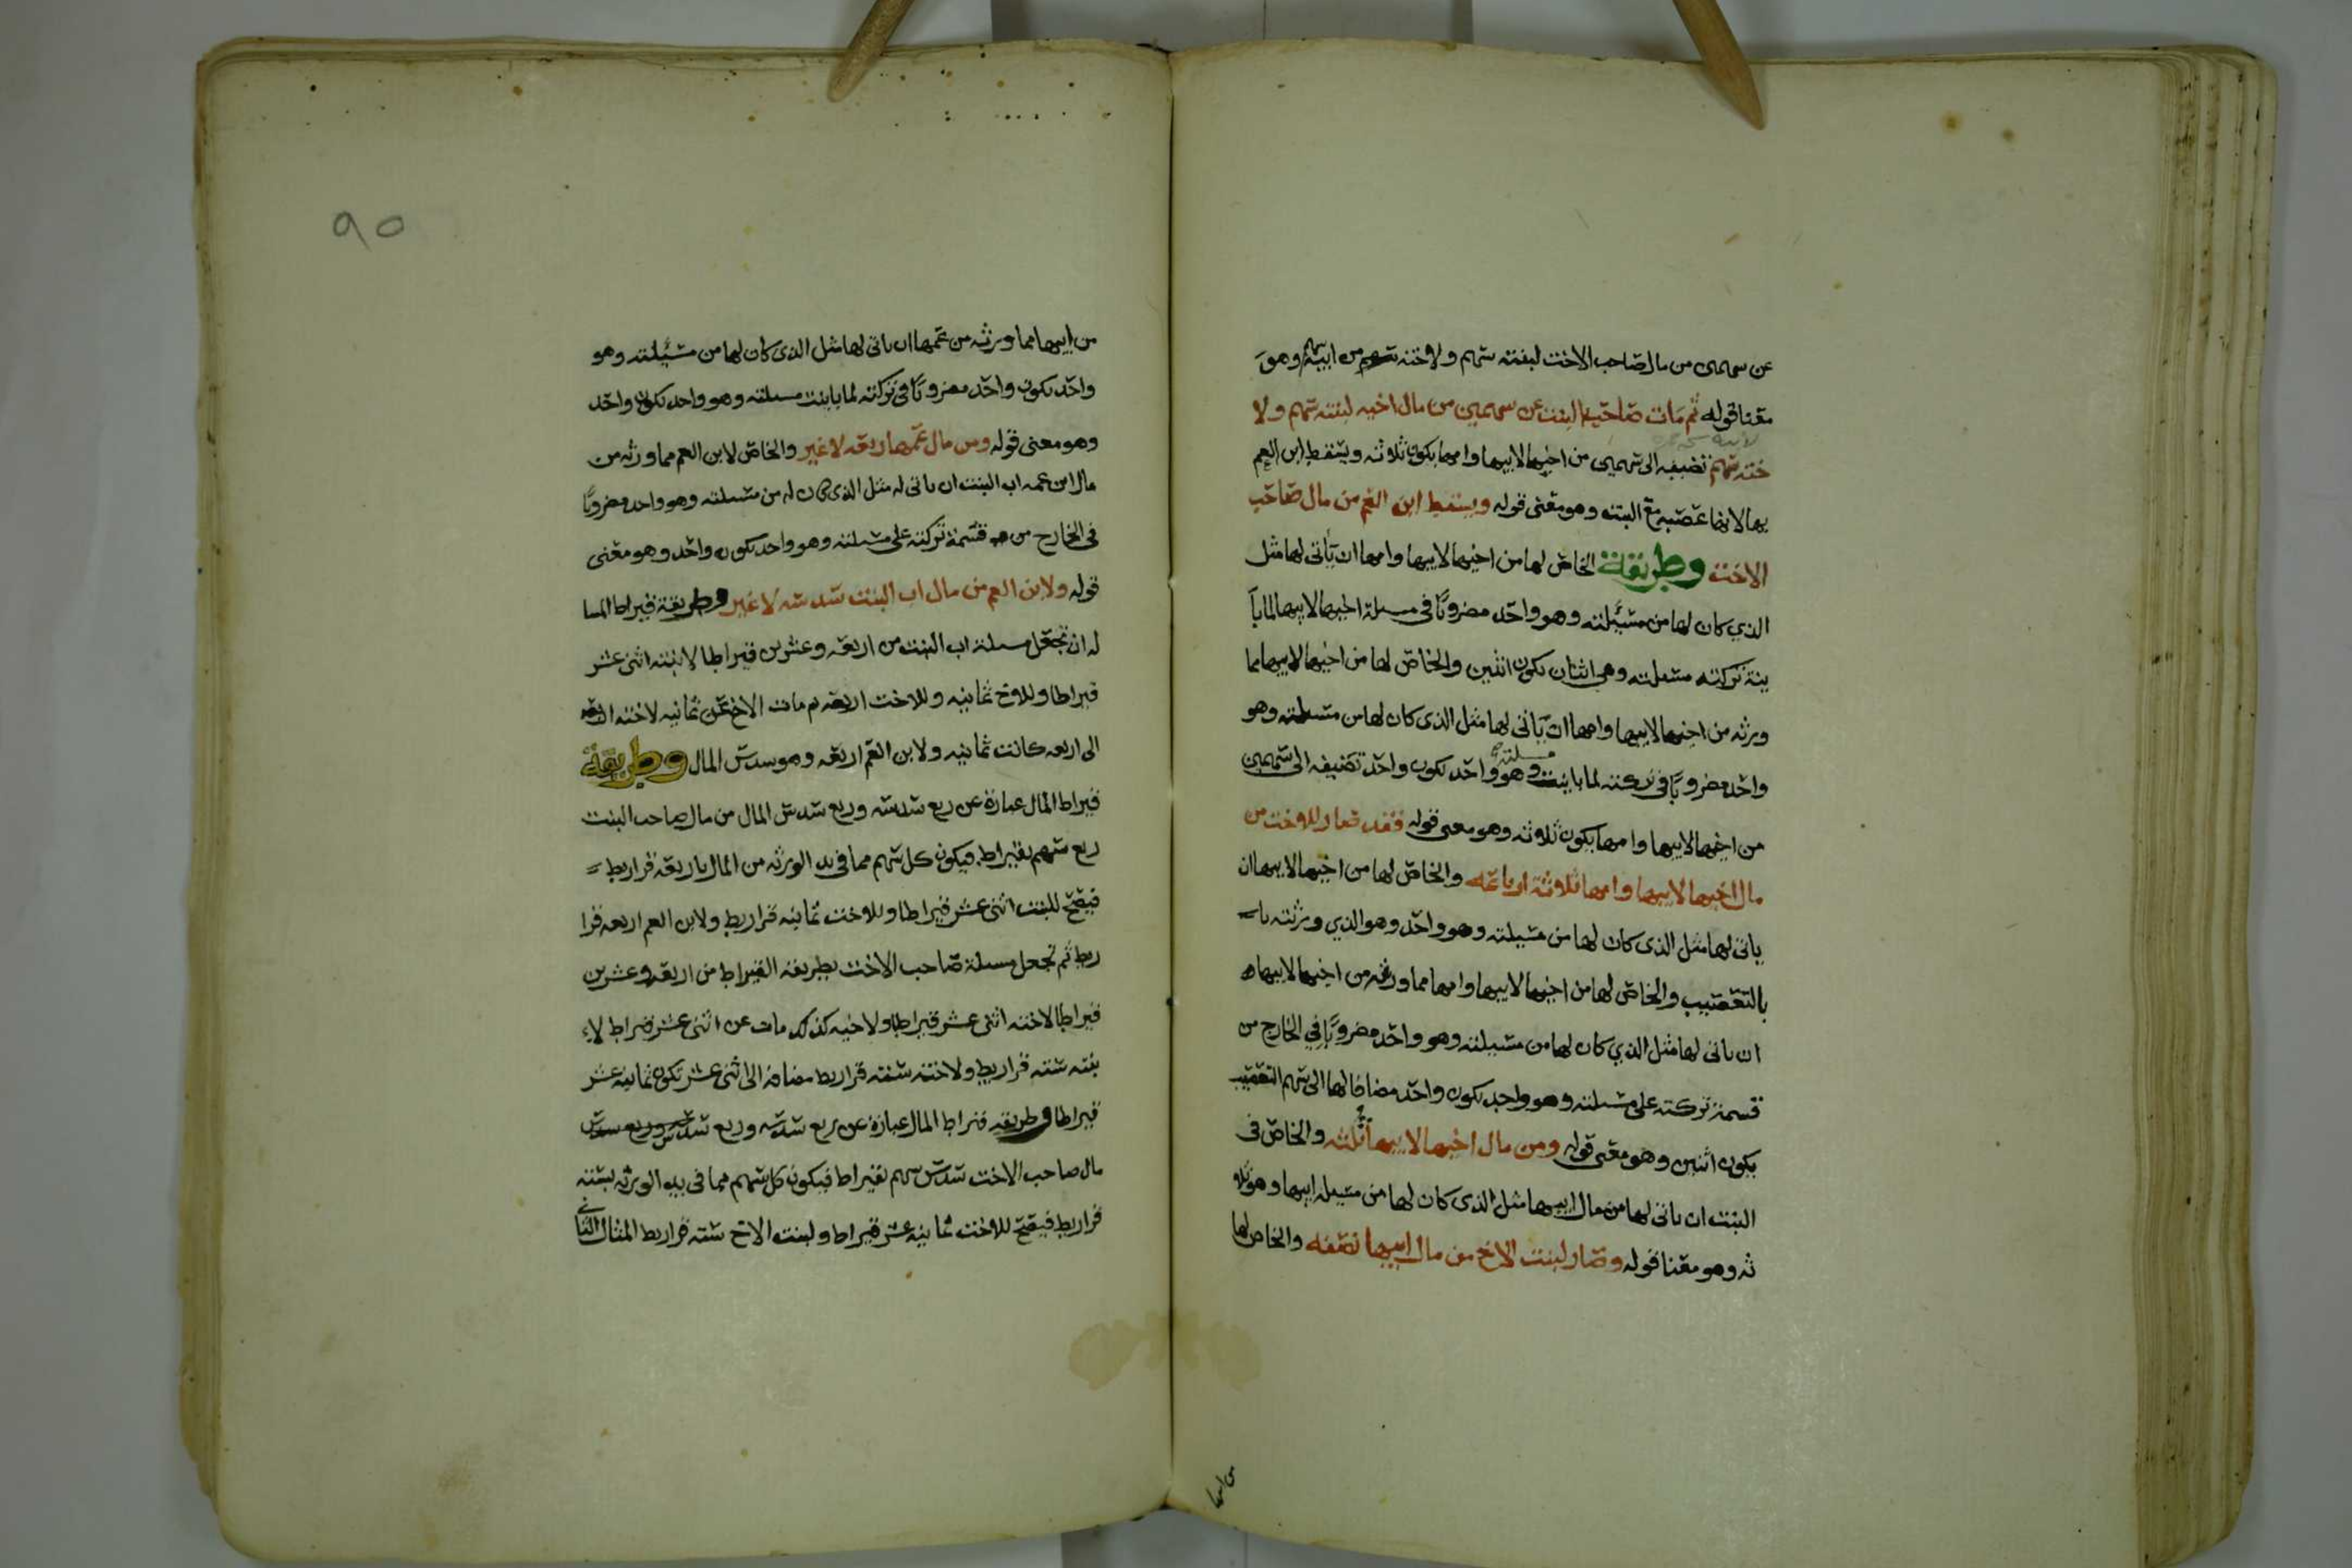 عن سهمين من مال صاحب الاخت لبنته سهم ولاخته سهم من ابيه وهو
معنا قوله ثم مات صاحب البنت عن سهمين من مال اخيه لبنته سهم ولا
خته سهم تضيفه الى سهمين من اخيها لابيها وامها يكون ثلاثه ويسقط ابن العم
بها لانها عصبه مع البنت وهو معنى قوله ويسقط ابن العم من مال صاحب
الاخت وطريقة الخاص لها من اخيها لابيها وامها ان ياتي لها مثل
الذي كان لها من مسئلته وهو واحد مضروبا في مسئلة اخيها لابيها لمبا
ينة تركته مسئلته وهي اثنان يكون اثنين والخاص لها من اخيها لابيها مما
ورثه من اخيها لابيها وامها ان ياتي لها مثل الذي كان لها من مسئلته وهو
واحد مضروبا في تركته لما باينت مسئلته وهو واحد يكون واحد تضيفه الى سهمين
من اخيها لابيها وامها يكون ثلاثه وهو معنى قوله فقد صار للاخت من
مال اخيها لابيها وامها ثلاثة ارباعه والخاص لها من اخيها لابيها ان
ياتي لها مثل الذي كان لها من مسئلته وهو واحد وهو الذي ورثته
بالتعصيب والخاص لها من اخيها لابيها وامها مما ورثه من اخيها لابيها
ان ياتي لها مثل الذي كان لها من مسئلته وهو واحد مضروبا في الخارج من
قسمة تركته على مسئلته وهو واحد يكون واحد مضافا لها الى سهم التعصيب
يكون اثنين وهو معنى قوله ومن مال اخيها لابيها ثلثه والخاص في
البنت ان ياتي لها من مال ابيها مثل الذي كان لها من مسئلة ابيها وهو ثلا
ثه وهو معنا قوله وصار لبنت الاخ من مال ابيها نصفه والخاص لها
من ابيها
٩٥
من ابيها مما ورثه من عمها ان ياتي لها مثل الذي كان لها من مسئلته وهو
واحد يكون واحد مضروبا في تركته لما باينت مسئلته وهو واحد يكون واحد
وهو معنى قوله ومن مال عمها ربعه لا غير والخاص لابن العم مما ورثه من
مال ابن عمه اب البنت ان ياتي له مثل الذي كان له من مسئلته وهو واحد مضروبا
في الخارج من قسمة تركته على مسئلته وهو واحد يكون واحد وهو معنى
قوله ولابن العم من مال اب البنت سدسه لا غير وطريقة قيراط المسا
له ان تجعل مسئلة اب البنت من اربعه وعشرين قيراطا لابنته اثنى عشر
قيراطا وللاخ ثمانيه وللاخت اربعه ثم مات الاخ عن ثمانيه لاخته اربعه
الى اربعه كانت ثمانيه ولابن العم اربعه وهو سدس المال وطريقة
قيراط المال عبارة عن ربع سدسه وربع سدس المال من مال صاحب البنت
ربع سهم بقيراط فيكون كل سهم مما في يد الورثه من المال باربعه قراريط
فيصح للبنت اثنى عشر قيراطا وللاخت ثمانيه قراريط ولابن العم اربعه قرا
ريط ثم تجعل مسئلة صاحب الاخت بطريقة القيراط من اربعه وعشرين
قيراطا لاخته اثنى عشر قيراطا ولاخيه كذلك مات عن اثنى عشر قيراط لا
بنته سته قراريط ولاخته سته قراريط مضافه الى اثنى عشر تكون ثمانيه عشر
قيراطا وطريقه قيراط المال عبارة عن ربع سدسه وربع سدس
مال صاحب الاخت سدس سهم بقيراط فيكون كل سهم مما في يد الورثه بسته
قراريط فيصح للاخت ثمانيه عشر قيراطا ولبنت الاخ سته قراريط المثال الثاني